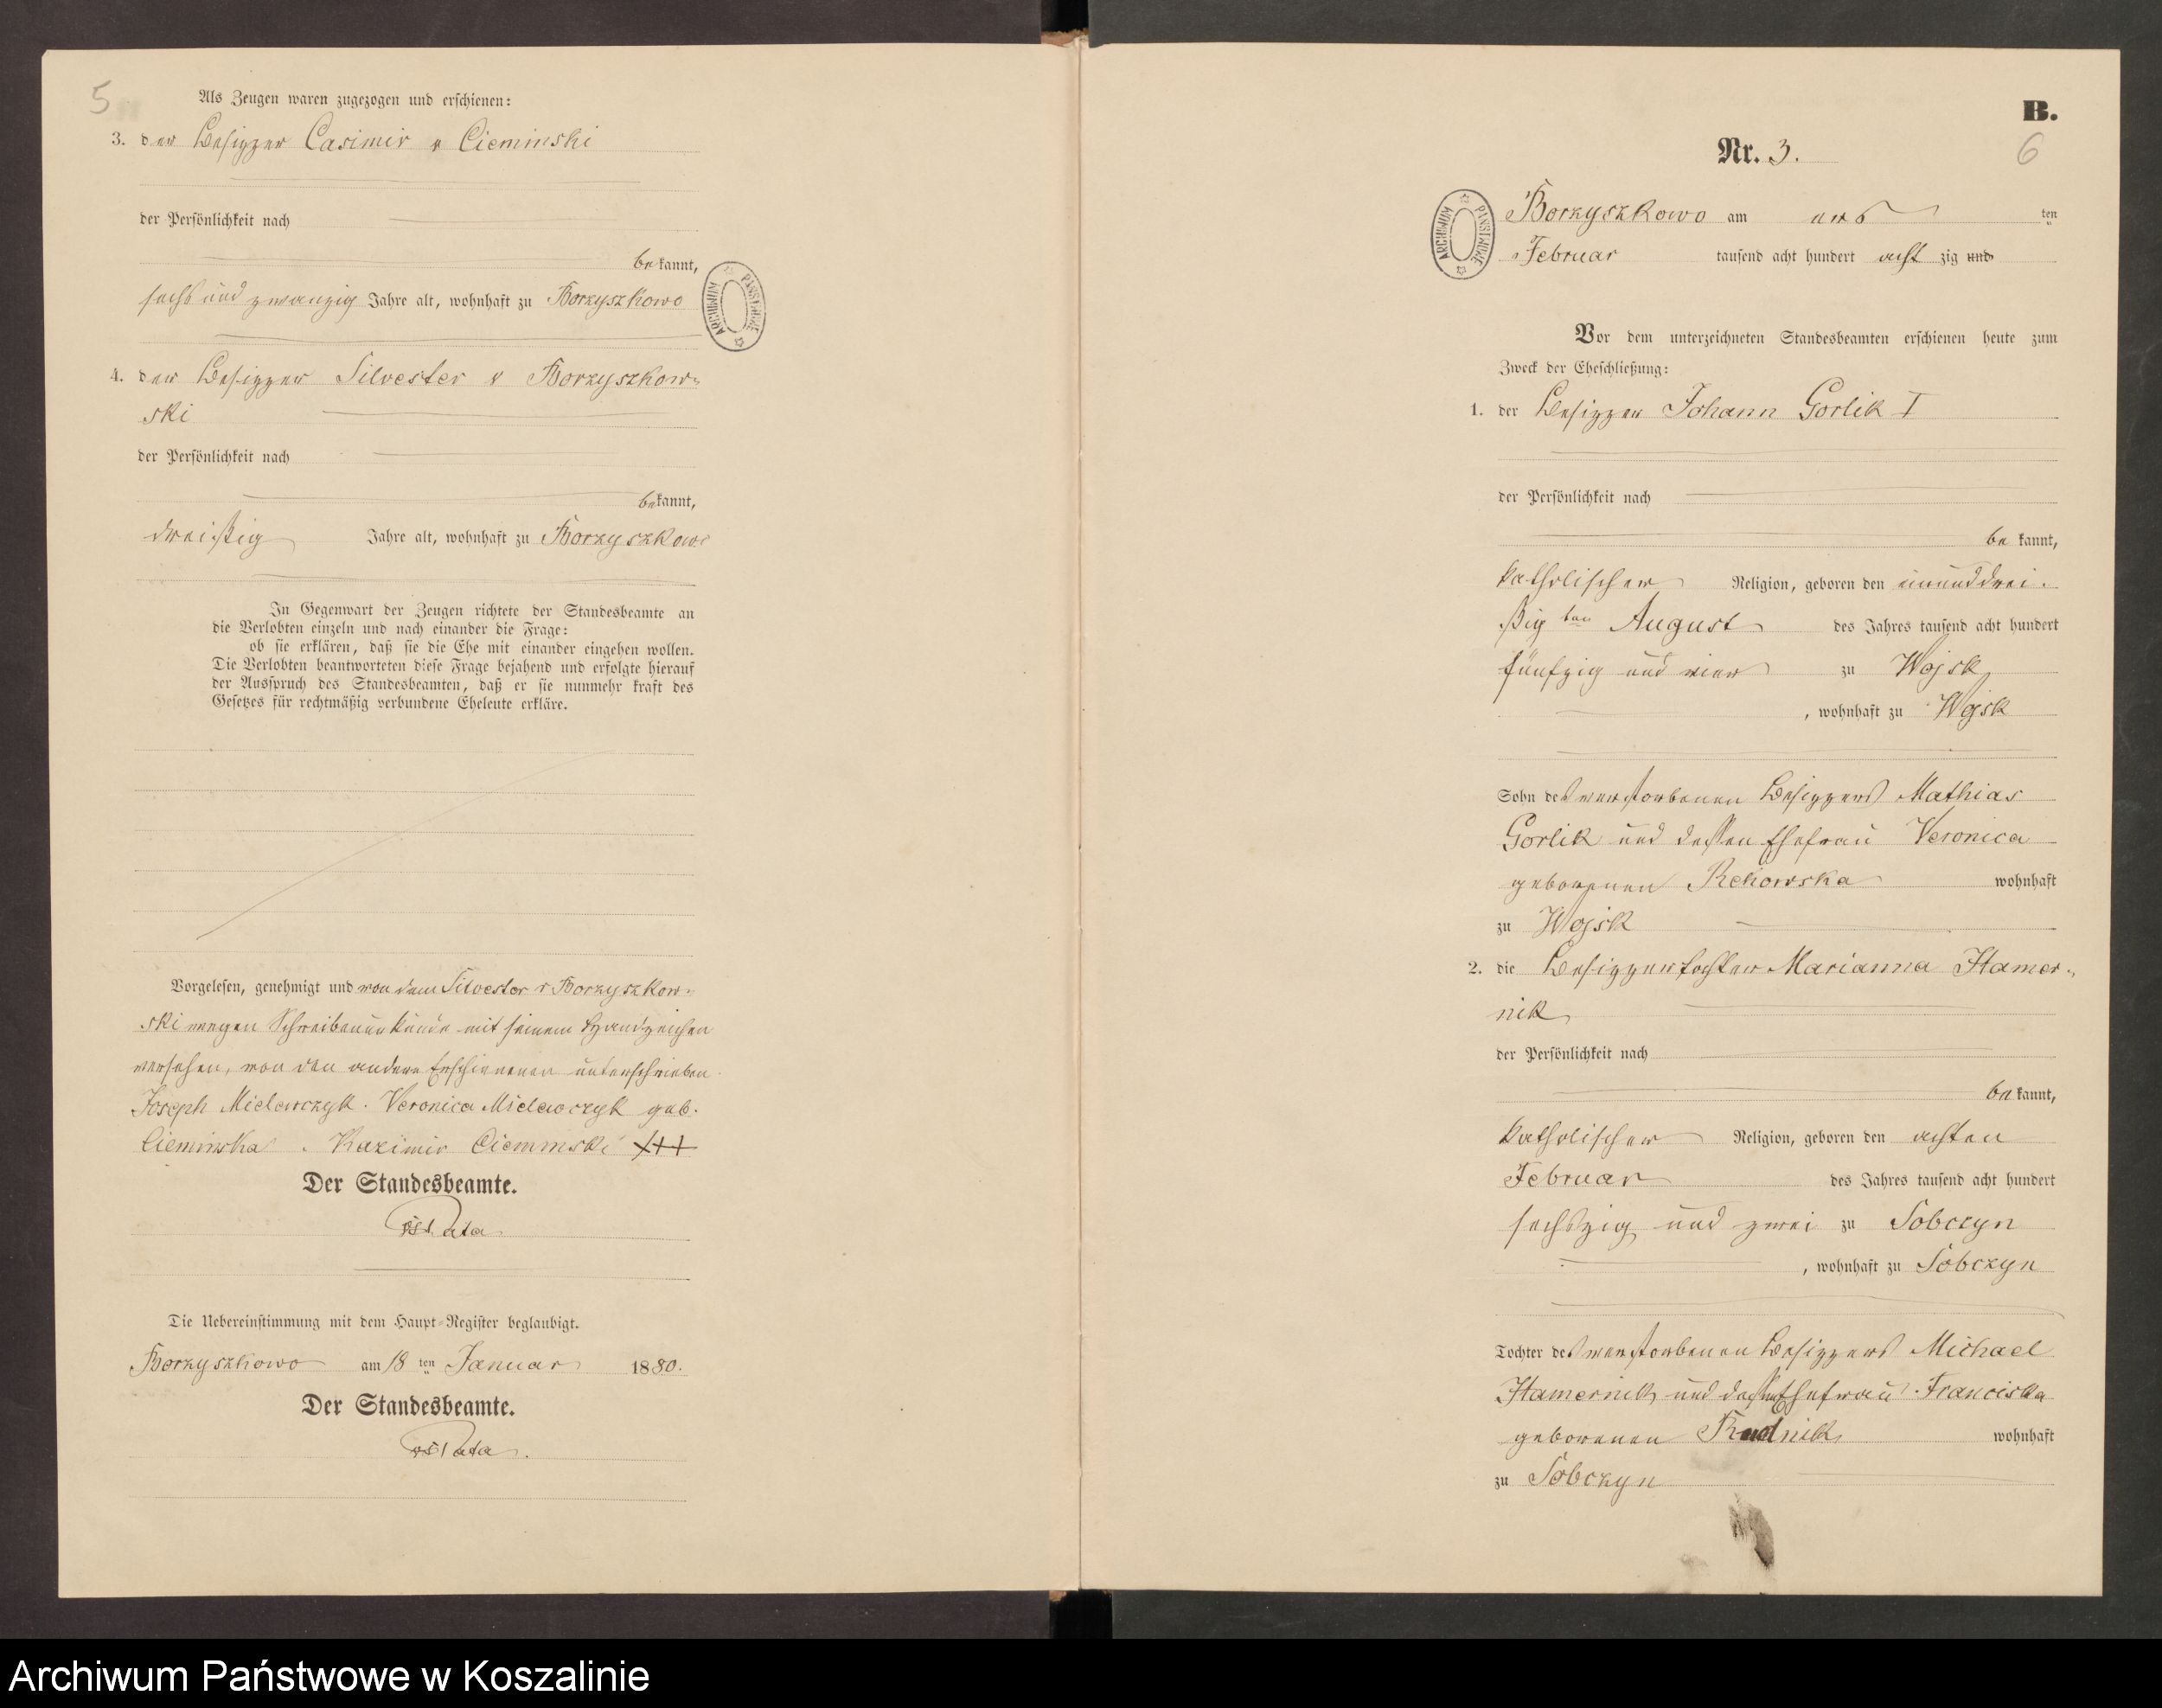 5
Als Zeugen waren zugezogen und erschienen:
3. der Besitzer Casimir v Cieminski
der Persönlichkeit nach
bekannt,
sechs und zwanzig Jahre alt, wohnhaft zu Borzyszkowo
4. der Besitzer Silvester v Borzyszkow-
ski
der Persönlichkeit nach
bekannt,
dreißig Jahre alt, wohnhaft zu Borzyszkowo
In Gegenwart der Zeugen richtete der Standesbeamte an
die Verlobten einzeln und nach einander die Frage:
ob sie erklären, daß sie die Ehe mit einander eingehen wollen.
Die Verlobten beantworteten diese Frage bejahend und erfolgte hierauf
der Ausspruch des Standesbeamten, daß er sie nunmehr kraft des
Gesetzes für rechtmäßig verbundene Eheleute erkläre.
Vorgelesen, genehmigt und von dem Silvester v Borzyszkow-
ski wegen Schreibenunkunde mit seinem Handzeichen
versehen, von den andern Erschienenen unterschrieben.
Joseph Mielewczyk. Veronica Mielewczyk geb.
Cieminska. Kazimir Cieminski +++
Der Standesbeamte.
Die Uebereinstimmung mit dem Haupt-Register beglaubigt.
Borzyszkowo am 18 ten Januar 1880.
Der Standesbeamte.
ARCHIWUM PAŃSTWOWE
B.
6
Nr. 3.
ARCHIWUM PAŃSTWOWE
Borzyszkowo am ten
Februar tausend acht hundert acht zig und
Vor dem unterzeichneten Standesbeamten erschienen heute zum
Zweck der Eheschließung:
1. der Besitzer Johann Gorlik I
der Persönlichkeit nach
be kannt,
katholischer Religion, geboren den einunddrei-
ßig ten August des Jahres tausend acht hundert
fünfzig und vier zu Wojsk
, wohnhaft zu Wojsk
Sohn des verstorbenen Besitzers Mathias
Gorlik und dessen Ehefrau Veronica
geborenen Rekowska wohnhaft
zu Wojsk
2. die Besitzertochter Marianna Hamer-
nik
der Persönlichkeit nach
be kannt,
katholischer Religion, geboren den achten
Februar des Jahres tausend acht hundert
sechszig und zwei zu Sobczyn
, wohnhaft zu Sobczyn
Tochter des verstorbenen Besitzers Michael
Hamernik und dessen Ehefrau Franciska
geborenen Rudnik wohnhaft
zu Sobczyn
Archiwum Państwowe w Koszalinie